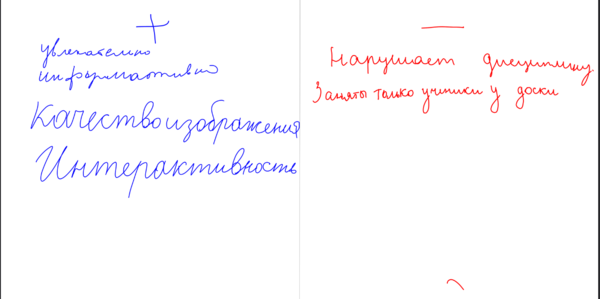 +
увлекательно
информативно
Качество изображения
Интерактивность
—
Нарушает дисциплину
Заняты только ученики у доски